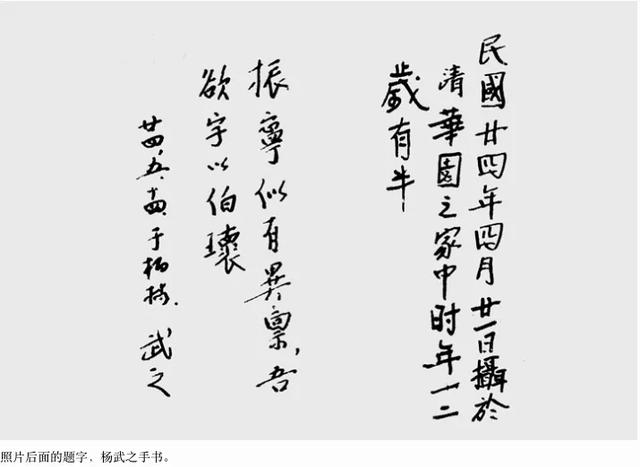 民國廿四年四月廿一日攝於
清華園之家中时年十二
歲有半
振寧似有異禀,吾
欲字以伯瓌
廿四、五、十四、于柏林. 武之
照片后面的题字,杨武之手书。